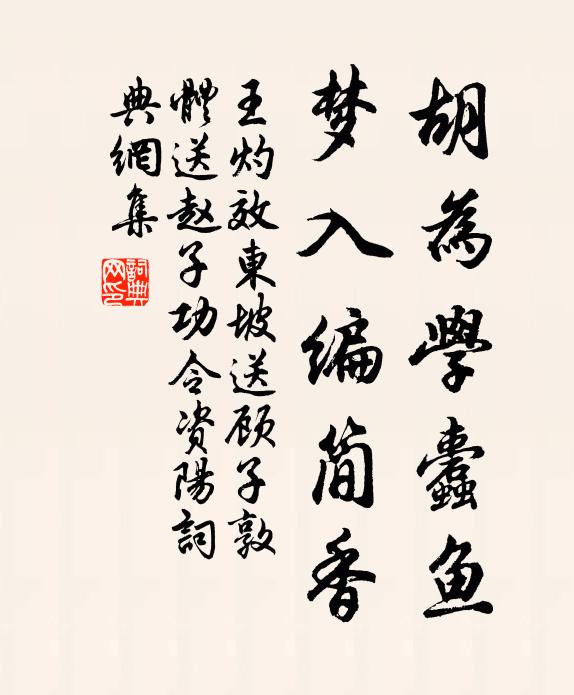 胡為學蠹鱼
梦入编简香
王灼效東坡送顾子敦
體送赵子功令资陽詞
典網集
詞典
网印